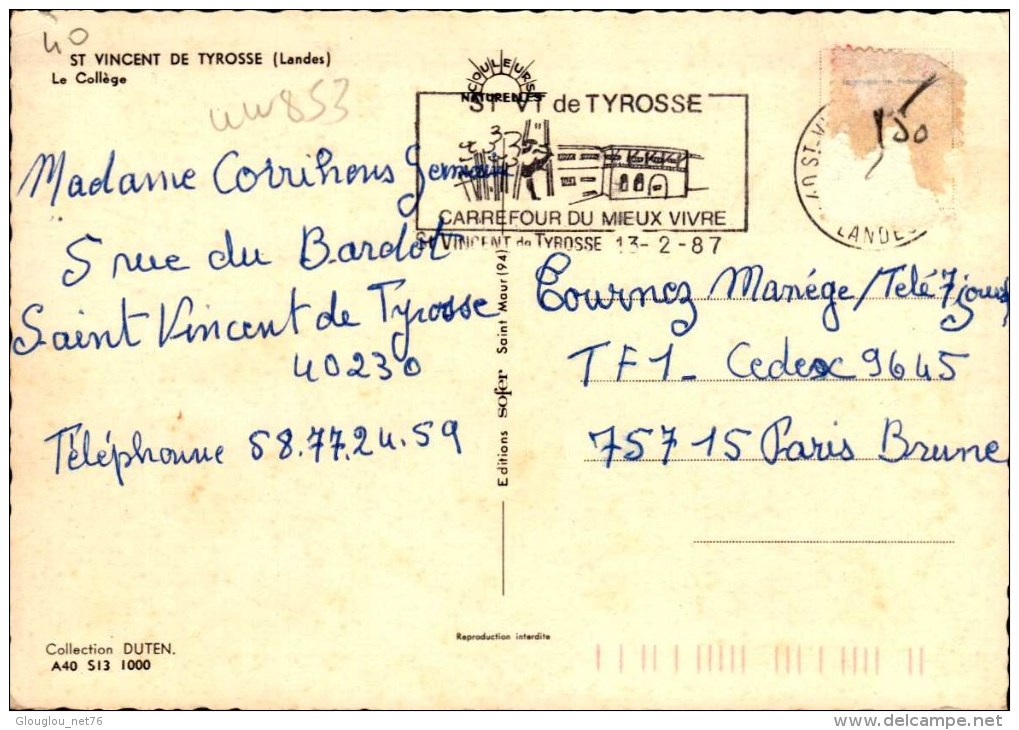 40
ST VINCENT DE TYROSSE (Landes)
Le Collège
WW853
COULEURS
NATURELLES
ST VT de TYROSSE
CARREFOUR DU MIEUX VIVRE
ST VINCENT de TYROSSE 13-2-87
40 ST-V
LANDES
150
Madame Corrihons
5 rue du Bardot
Saint Vincent de Tyrosse
40230
Téléphonne 58.77.24.59
Editions sofer Saint Maur (94)
Tournez Manége/Télé 7 jours
TF1_ Cedex 9645
75715 Paris Brune
Reproduction interdite
Collection DUTEN.
A40 S13 1000
Glouglou_net76
delcampe.net